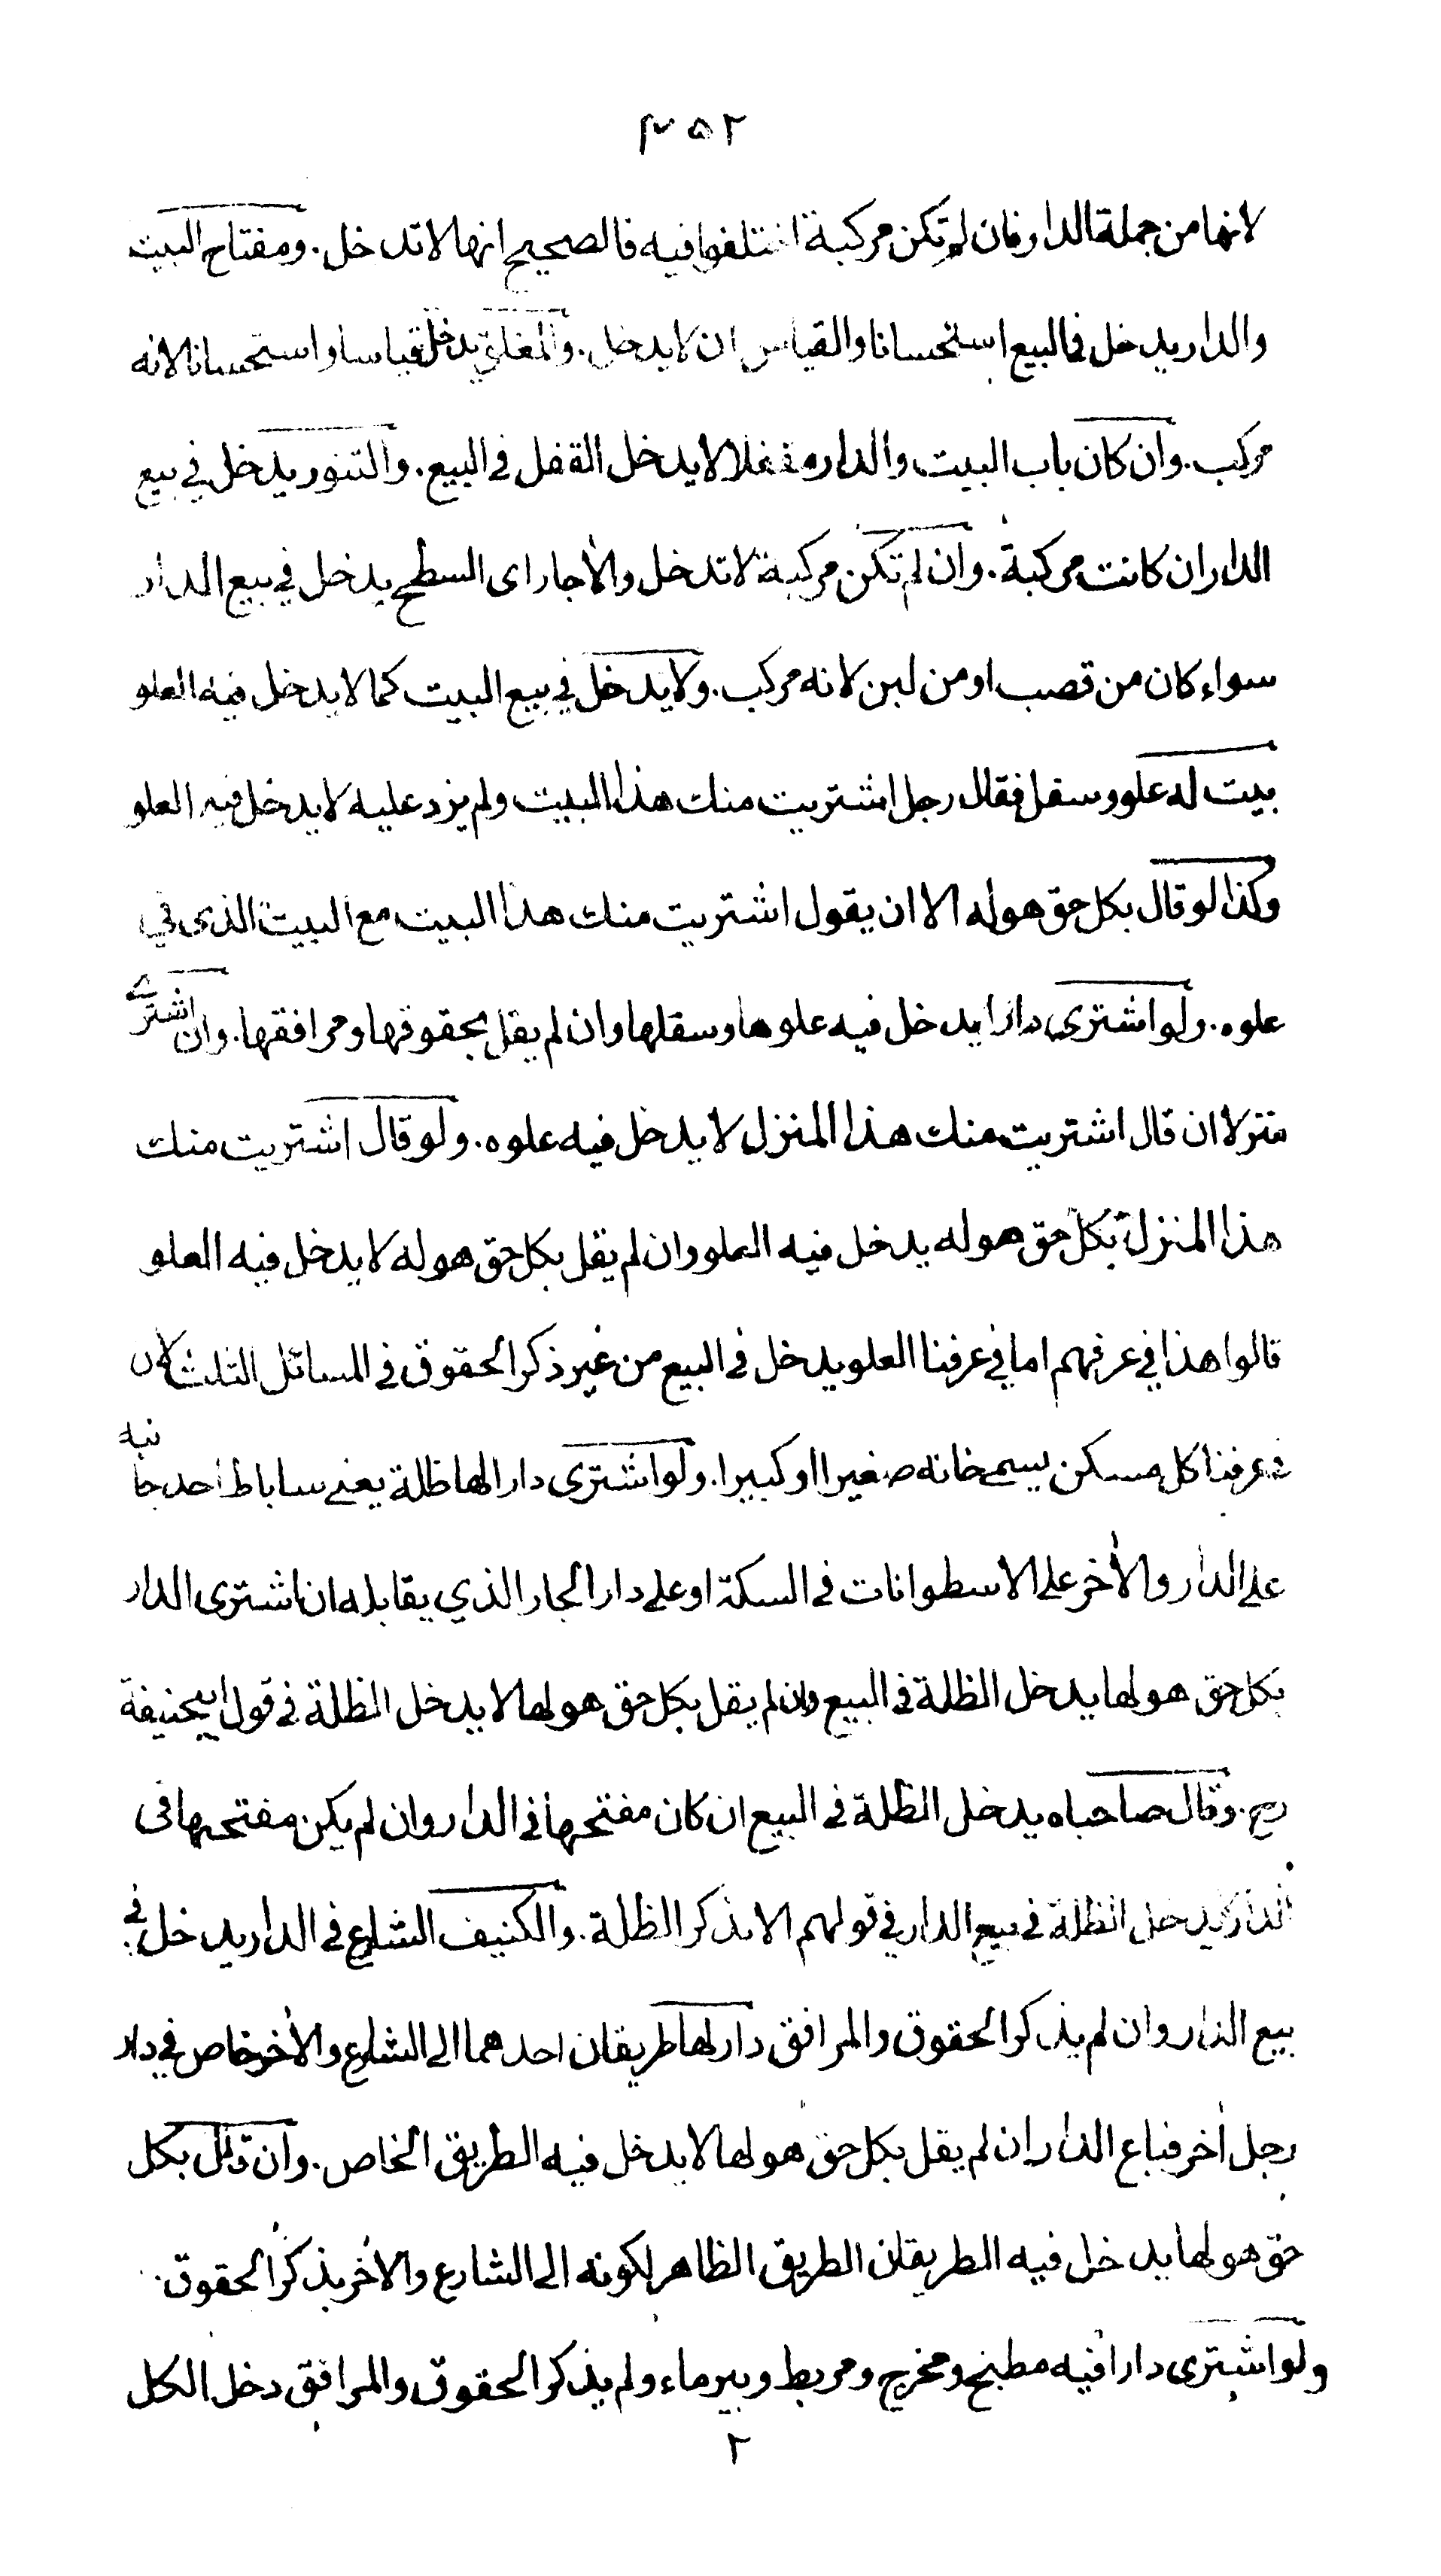 ٣٥٢
لانها من جملة الدار فان لم تكن مركبة اختلفوا فيه فالصحيح انها لا تدخل. ومفتاح البيت
والدار يدخل في البيع استحسانا والقياس ان لا يدخل. والمغلق يدخل قياسا واستحسانا لانه
مركب. وان كان باب البيت والدار مقفلا لا يدخل القفل في البيع. والتنور يدخل في بيع
الدار ان كانت مركبة. وان لم تكن مركبة لا تدخل والاجار اى السطح يدخل في بيع الدار
سواء كان من قصب او من لبن لانه مركب. ولا يدخل في بيع البيت كما لا يدخل فيه العلو
بيت له علو وسفل فقال رجل اشتريت منك هذا البيت ولم يزد عليه لا يدخل فيه العلو
وكذا لو قال بكل حق هو له الا ان يقول اشتريت منك هذا البيت مع البيت الذى في
علوه. ولو اشترى دارا يدخل فيه علوها وسفلها وان لم يقل بحقوقها ومرافقها. وان اشترے
منزلا ان قال اشتريت منك هذا المنزل لا يدخل فيه علوه. ولو قال اشتريت منك
هذا المنزل بكل حق هو له يدخل فيه العلو وان لم يقل بكل حق هو له لا يدخل فيه العلو
قالوا هذا في عرفهم اما في عرفنا العلو يدخل في البيع من غير ذكر الحقوق في المسائل الثلث لان
في عرفنا كل مسكن يسمى خانه صغيرا او كبيرا. ولو اشترى دارا لها ظلة يعنے ساباط احد جانبيه
على الدار والأخر على الاسطوانات في السكة او على دار الجار الذي يقابله ان اشترى الدار
بكل حق هو لها يدخل الظلة في البيع وان لم يقل بكل حق هو لها لا يدخل الظلة في قول ابيحنيفة
رح. وقال صاحباه يدخل الظلة في البيع ان كان مفتحها في الدار وان لم يكن مفتحها في
الدار لا يدخل الظلة في بيع الدار في قولهم الا بذكر الظلة. والكنيف الشارع في الدار يدخل في
بيع الدار وان لم يذكر الحقوق والمرافق دار لها طريقان احدهما الى الشارع والأخر خاص في دار
رجل أخر فباع الدار ان لم يقل بكل حق هو لها لا يدخل فيه الطريق الخاص. وان قال بكل
حق هو لها يدخل فيه الطريقان الطريق الظاهر لكونه الى الشارع والأخر بذكر الحقوق.
ولو اشترى دارا فيه مطبخ ومخرج ومربط وبير ماء ولم يذكر الحقوق والمرافق دخل الكل
٢